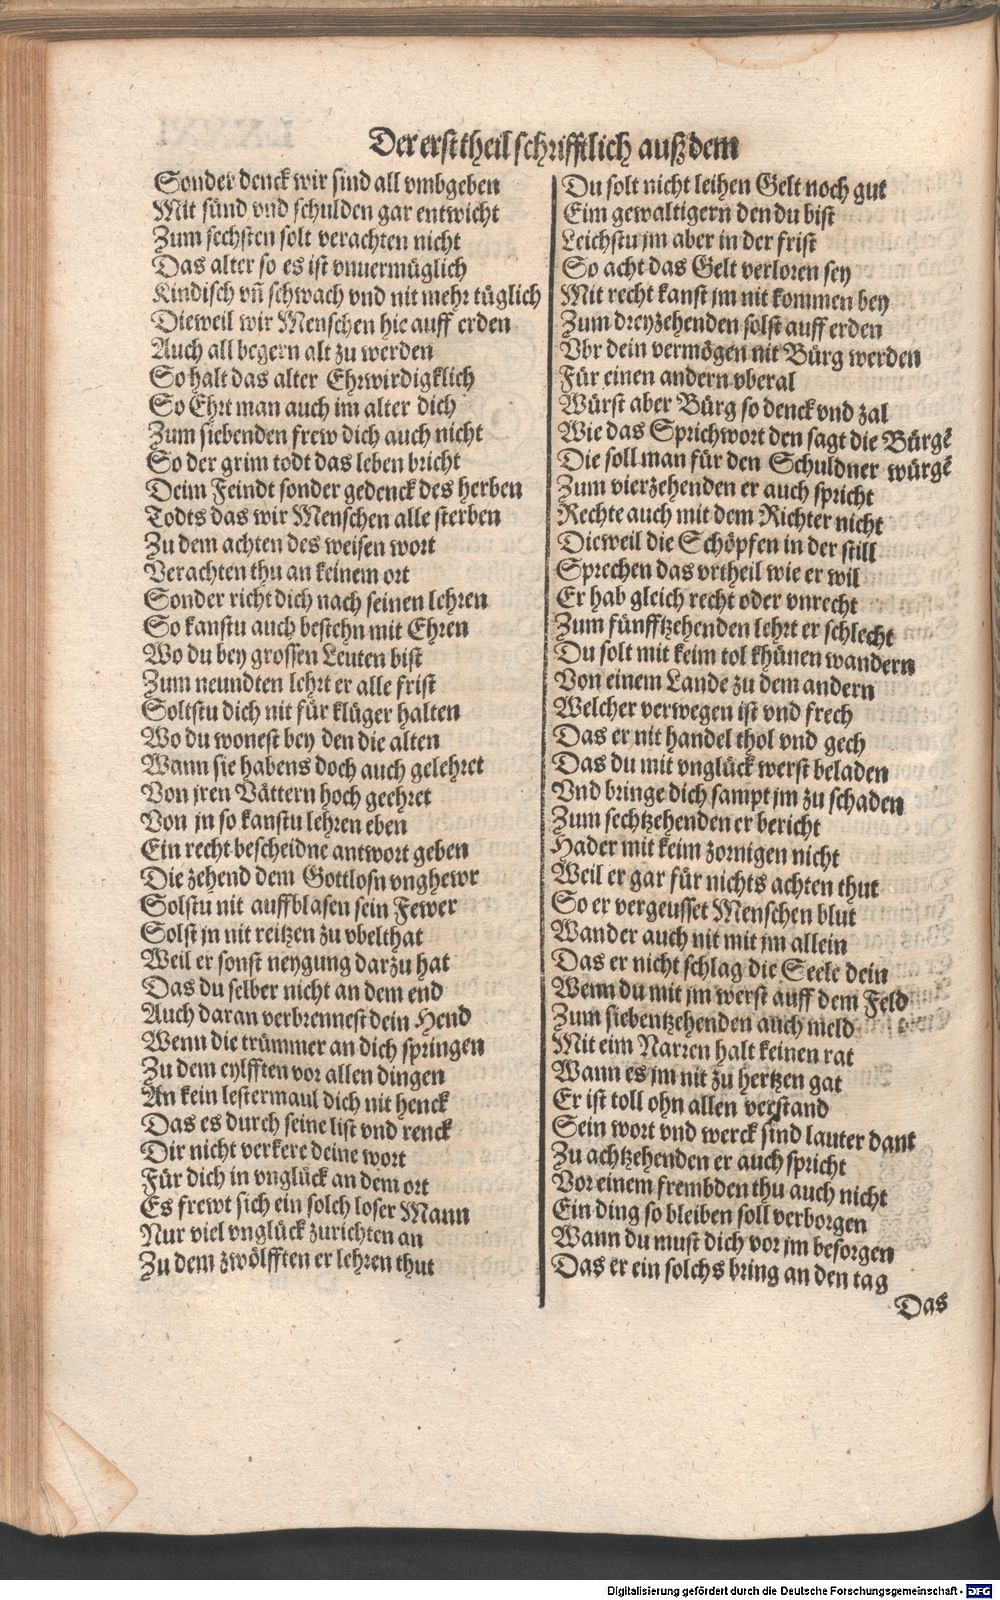 Der erst theil schrifftlich auß dem
Sonder denck wir sind all vmbgeben
Mit sünd vnd schulden gar entwicht
Zum sechsten solt verachten nicht
Das alter so es ist vnuermüglich
Kindisch vñ schwach vnd nit mehr tüglich
Dieweil wir Menschen hie auff erden
Auch all begern alt zu werden
So halt das alter Ehrwirdigklich
So Ehrt man auch im alter dich
Zum siebenden frew dich auch nicht
So der grim todt das leben bricht
Deim Feindt sonder gedenck des herben
Todts das wir Menschen alle sterben
Zu dem achten des weisen wort
Verachten thu an keinem ort
Sonder richt dich nach seinen lehren
So kanstu auch bestehn mit Ehren
Wo du bey grossen Leuten bist
Zum neundten lehrt er alle frist
Soltstu dich nit für klüger halten
Wo du wonest bey den die alten
Wann sie habens doch auch gelehret
Von jren Vättern hoch geehret
Von jn so kanstu lehren eben
Ein recht bescheidne antwort geben
Die zehend dem Gottlosn vnghewr
Solstu nit auffblasen sein Fewer
Solst jn nit reitzen zu vbelthat
Weil er sonst neygung darzu hat
Das du selber nicht an dem end
Auch daran verbrennest dein Hend
Wenn die trümmer an dich springen
Zu dem eylfften vor allen dingen
An kein lestermaul dich nit henck
Das es durch seine list vnd renck
Dir nicht verkere deine wort
Für dich in vnglück an dem ort
Es frewt sich ein solch loser Mann
Nur viel vnglück zurichten an
Zu dem zwölfften er lehren thut
Du solt nicht leihen Gelt noch gut
Eim gewaltigern den du bist
Leichstu jm aber in der frist
So acht das Gelt verloren sey
Mit recht kanst jm nit kommen bey
Zum dreyzehenden solst auff erden
Vbr dein vermögen nit Bürg werden
Für einen andern vberal
Würst aber Bürg so denck vnd zal
Wie das Sprichwort den sagt die Bürgẽ
Die soll man für den Schuldner würgẽ
Zum vierzehenden er auch spricht
Rechte auch mit dem Richter nicht
Dieweil die Schöpfen in der still
Sprechen das vrtheil wie er wil
Er hab gleich recht oder vnrecht
Zum fünfftzehenden lehrt er schlecht
Du solt mit keim tol khünen wandern
Von einem Lande zu dem andern
Welcher verwegen ist vnd frech
Das er nit handel thol vnd gech
Das du mit vnglück werst beladen
Vnd bringe dich sampt jm zu schaden
Zum sechtzehenden er bericht
Hader mit keim zornigen nicht
Weil er gar für nichts achten thut
So er vergeusset Menschen blut
Wander auch nit mit jm allein
Das er nicht schlag die Seele dein
Wenn du mit jm werst auff dem Feld
Zum siebentzehenden auch meld
Mit eim Narren halt keinen rat
Wann es jm nit zu hertzen gat
Er ist toll ohn allen verstand
Sein wort vnd werck sind lauter dant
Zu achtzehenden er auch spricht
Vor einem frembden thu auch nicht
Ein ding so bleiben soll verborgen
Wann du must dich vor jm besorgen
Das er ein solchs bring an den tag
Das
Digitalisierung gefördert durch die Deutsche Forschungsgemeinschaft - DFG